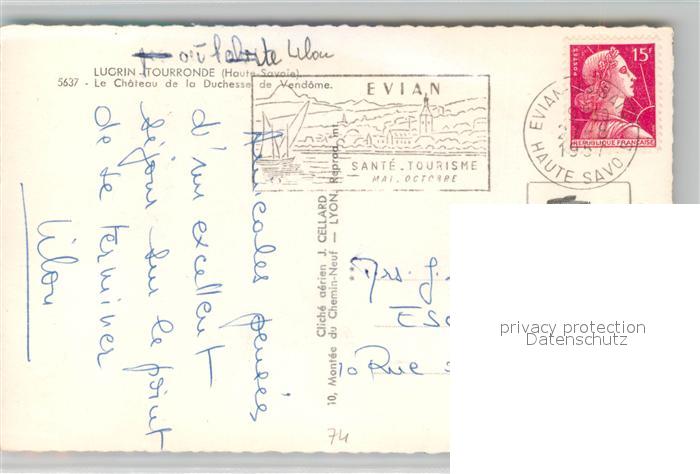 où habite Lilou
LUGRIN - TOURRONDE (Haute-Savoie).
5637 - Le Château de la Duchesse de Vendôme.
EVIAN
SANTÉ - TOURISME
MAI. OCTOBRE
EVIAN
1957
HAUTE SAVOIE
POSTES
15F
REPUBLIQUE FRANÇAISE
Amicales pensées
d'un excellent
séjour sur le point
de se terminer
Lilou
Cliché aérien J. CELLARD
10, Montée du Chemin-Neuf — LYON. Reprod. int.
Mrs. J.
ESC
10 Rue
74
privacy protection
Datenschutz